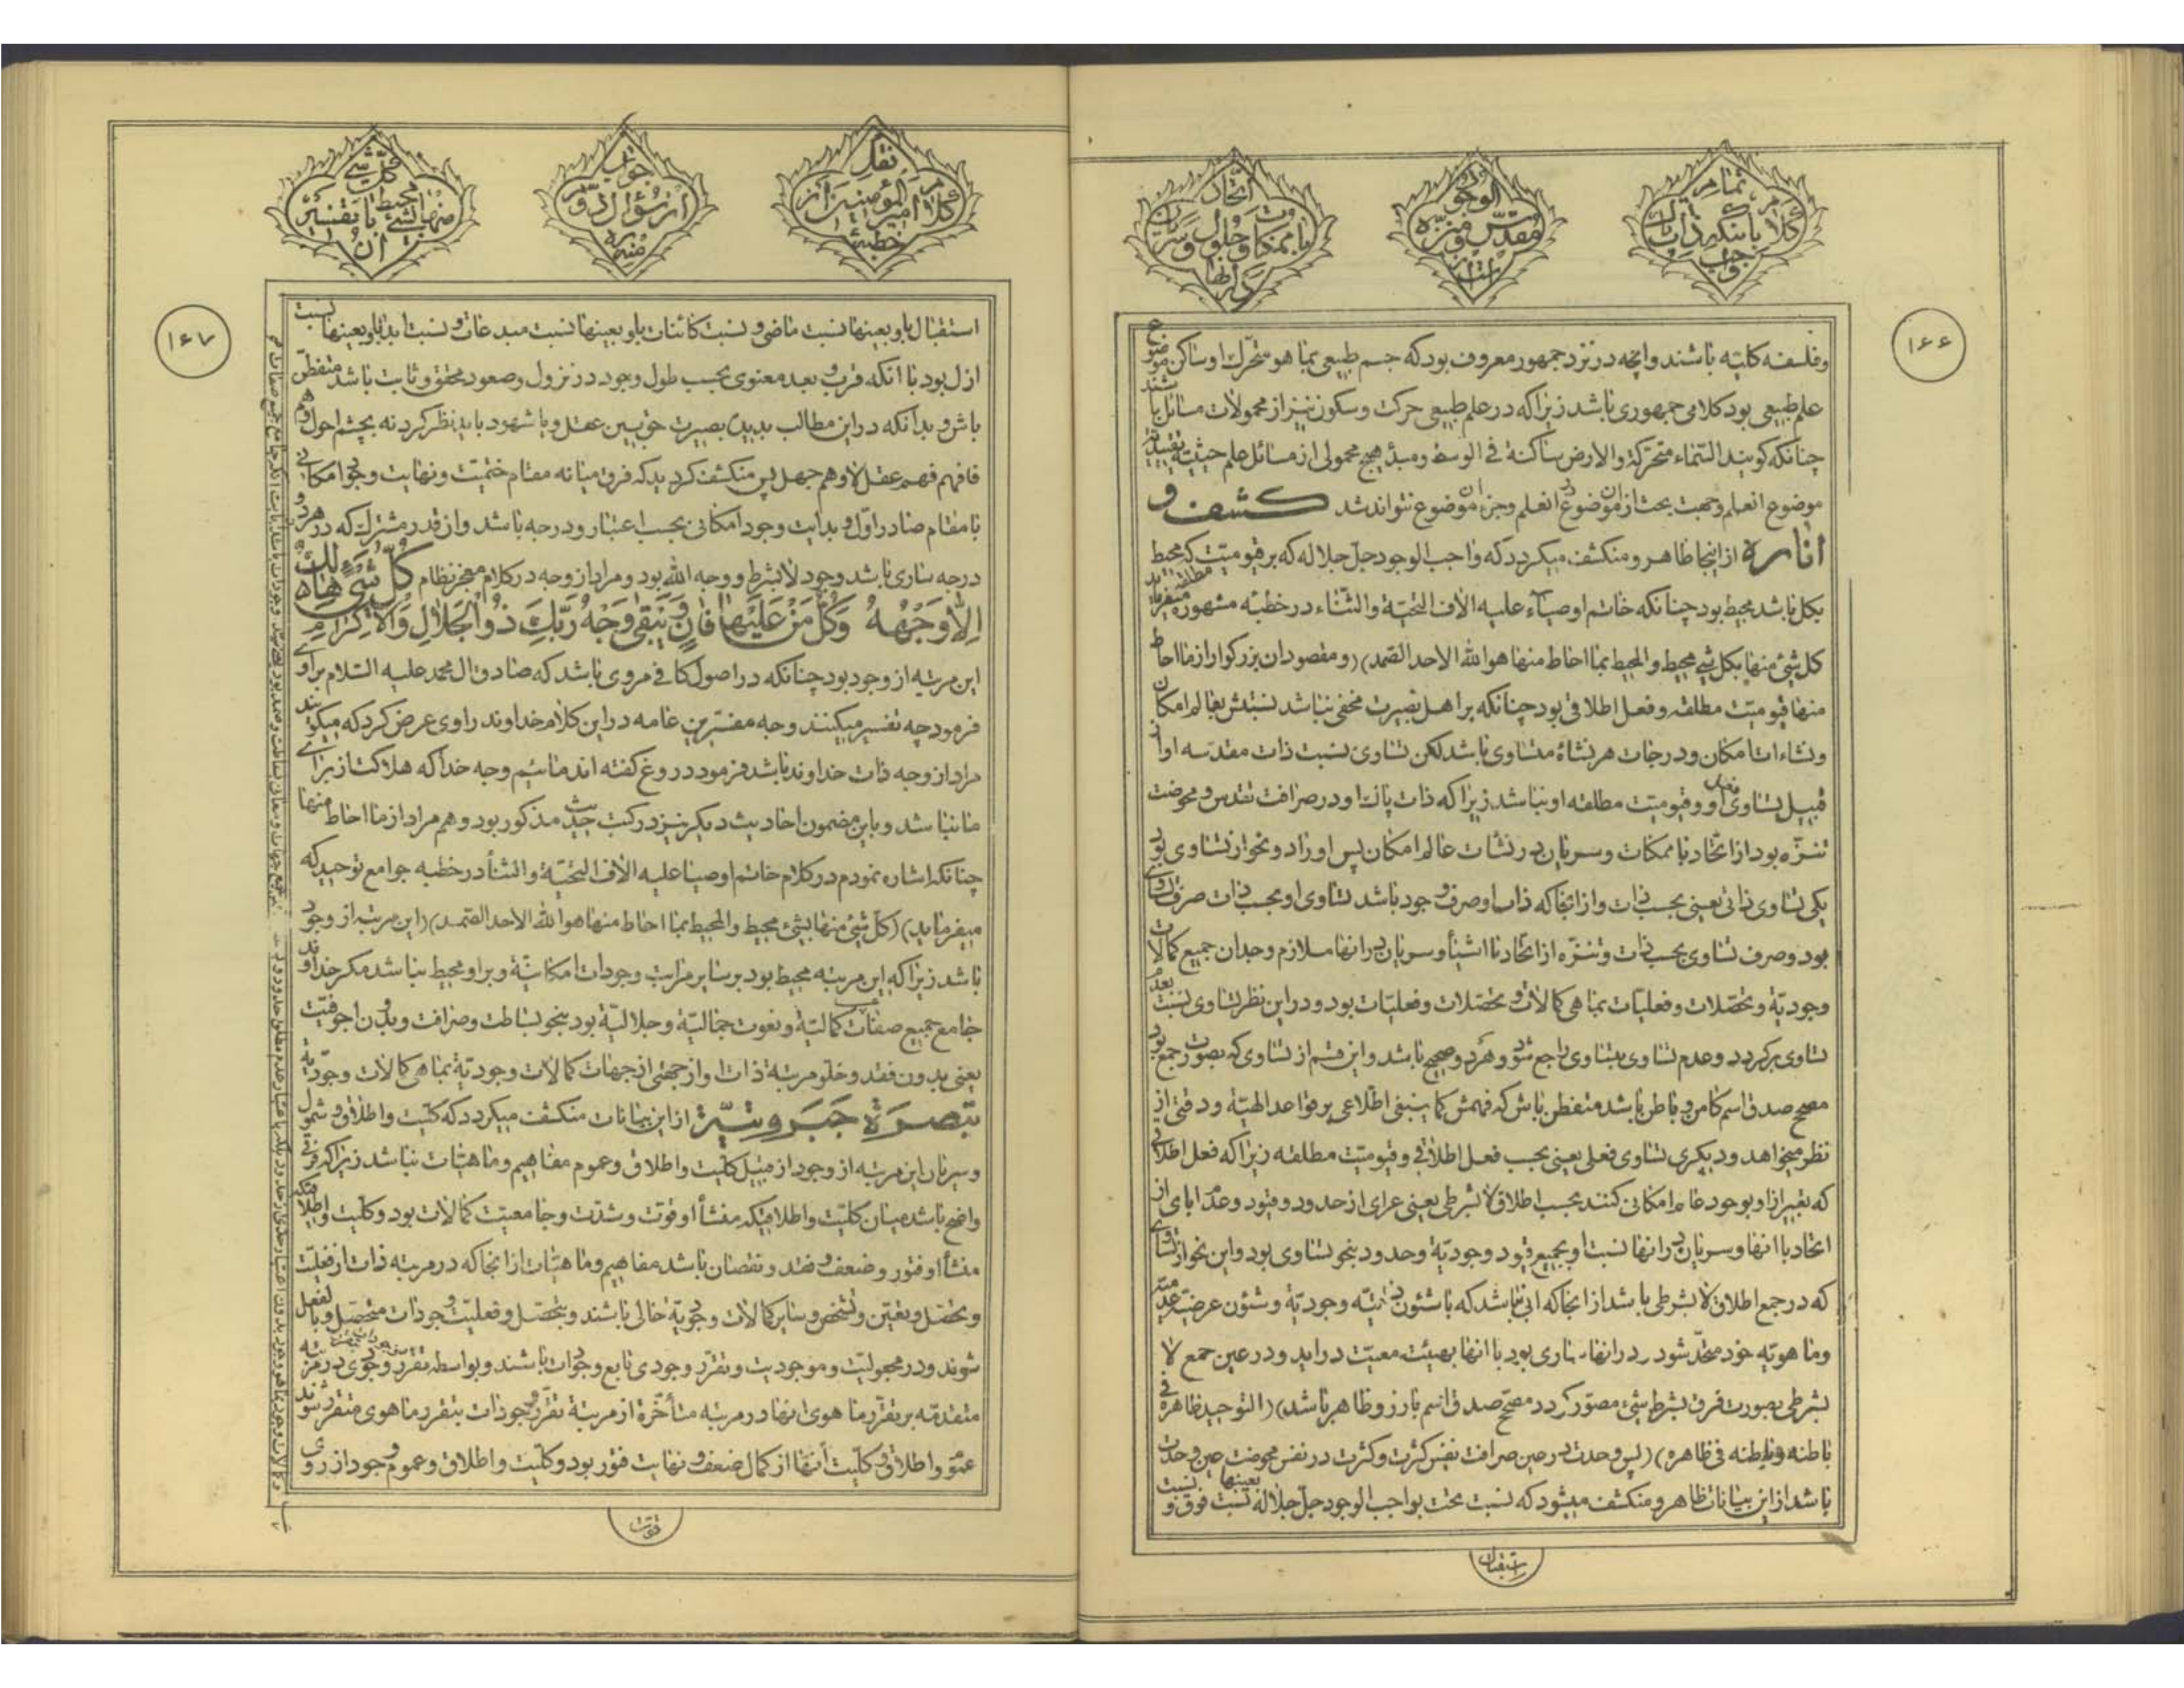 تمامر
کلام باینکه ذات
واجب
الوجود
مقدس و منزه
است از
اتحاد
با ممکنات و حلول و سریان
در انها
۱۶۶
وفلسفه کلیّه باشند وانچه در نزد جمهور معروف بود که جسم طبیعی بما هو متحرک او ساکن موضوع
علم طبیعی بود کلامی جمهوری باشد زیرا که در علم طبیعی حرکت و سکون نیز از محمولات مسائل باشند
چنانکه کویند السّماء متحرّکة والارض ساکنة فی الوسط و مبدء هیچ محمولی از مسائل علم حیثیت تقییدیه
موضوع انعلم وجهت بحث از ان موضوع در انعلم وجزء ان موضوع نتواند شد کشف و
انارة از اینجا ظاهر و منکشف میکردد که واجب الوجود جلّ جلاله که بر قیومیّت که محیط
بکل باشد محیط بود چنانکه خاتم اوصیآء علیه الاف التحیّة والثّناء در خطبّه مشهوره میفرماید
کل شئ منها بکل شئ محیط والمحیط بما احاط منها هو الله الاحد الصّمد) (و مقصود ان بزرکوار از ما احاط
منها قیومیّت مطلقه و فعل اطلاقی بود چنانکه بر اهل بصیرت مخفی نباشد نسبتش بعالم امکان
ونشاءات امکان و درجات هر نشاة متساوی باشد لکن تساوی نسبت ذات مقدسه او از
قبیل تساوی فعل او و قیومیّت مطلقه او نباشد زیرا که ذات پاک او در صرافت تقدس و محوضت
تنزّه بود از اتّحاد با ممکنات و سریان در نشات عالم امکان پس او را دو نحو از تساوی بود
یکی تساوی ذاتی یعنی بحسب ذات و از انجا که ذات او صرف وجود باشد تساوی او بحسب ذات صرف تساوی
بود وصرف تساوی بحسب ذات و تنزّه از اتّحاد با اشیأ و سریان در انها ملازم وجدان جمیع کمالات
وجودیّة و تحصّلات و فعلیّات بما هی کمالات و تحصّلات و فعلیّات بود و در این نظر تساوی نسبت بعدم
تساوی برکردد و عدم تساوی بتساوی راجع شود و هر دو صحیح باشد و این قسم از تساوی که بصورت جمع بود
مصحح صدق اسم کامن و باطن باشد متفطن باش که فهمش کما ینبغی اطلاعی بر قواعد الهیّة و دقتی از
نظر میخواهد و دیکری تساوی فعلی یعنی بحسب فعل اطلاقی و قیومیّت مطلقه زیرا که فعل اطلاقی
که تعبیر از او بوجود عام امکانی کنند بحسب اطلاق لا بشرطی یعنی عرای از حدود و قیود و عدم ابای از
اتحاد با انها و سریان در انها نسبت او بجمیع قیود وجودیّة و حدود بنحو تساوی بود و این نحو از تساوی
که در جمع اطلاق لا بشرطی باشد از انجا که ابی نباشد که با شئون ذاتیّه وجودیّة و شئون عرضیّه عدمیّه
وماهویّه خود متّحد شود و در انها ساری بود با انها بهیئت معیّت دراید و در عین جمع لا
بشرطی بصورت فرق بشرط شئ مصوّر کردد مصحّح صدق اسم بارز و ظاهر باشد) (التوحید ظاهره فی
باطنه و باطنه فی ظاهره) (پس وحدت در عین صرافت نفس کثرت و کثرت در نفس محوضت عین وحدت
باشد از این بیانات ظاهر و منکشف میشود که نسبت تحت بواجب الوجود جلّ جلاله بعینها نسبت فوق و نسبت
استقبال
نقل
کلام امیر المؤمنین از
خطبه
جواب
از سؤال دوّم
منیره
کلّ شئ
منها بشئ محیط با تفسیر
ان
۱۶۷
استقبال باو بعینها نسبت ماضی و نسبت کائنات باو بعینها نسبت مبدعات و نسبت ابد باو بعینها نسبت
ازل بود با انکه قرب و بعد معنوی بحسب طول وجود در نزول وصعود محقق و ثابت باشد متفطن
باش و بدانکه در این مطالب بدیده بصیرت حق بین عقل و یا شهود باید نظر کرد نه بچشم احول وهم
فافهم فهم عقل لا وهم جهل پس منکشف کردید که فرق میانه مقام ختمیّت و نهایت وجود امکانی
با مقام صادر اوّل و بدایت وجود امکانی بحسب اعتبار و درجه باشد و از قدر مشترک که در هر دو
درجه ساری باشد وجود لا بشرط و وجه الله بود و مراد از وجه در کلام معجز نظام کُلُّ شَیْءٍ هَالِكٌ
اِلاّٰ وَجْهَهُ وَکُلُّ مَنْ عَلَیْهَا فَانٍ وَیَبْقیٰ وَجْهُ رَبِّكَ ذُو الْجَلاٰلِ وَالْاِکْرَامِ
این مرتبه از وجود بود چنانکه در اصول کافی مروی باشد که صادق ال محمد علیه السّلام براوی
فرمود چه تفسیر میکنند وجه مفسّرین عامه در این کلام خداوند راوی عرض کرد که میکویند
مراد از وجه ذات خداوند باشد فرمود دروغ کفته اند ما ئیم وجه خدا که هلاکت از برای
ما نباشد و باین مضمون احادیث دیکر نیز در کتب حدیث مذکور بود و هم مراد از ما احاط منها
چنانکه اشاره نمودم در کلام خاتم اوصیا علیه الاف التحیّة والثنأ در خطبه جوامع توحید که
میفرماید) (کلّ شئ منها بشئ محیط والمحیط بما احاط منها هو الله الاحد الصّمد) (این مرتبه از وجود
باشد زیرا که این مرتبه محیط بود بر سایر مراتب وجودات امکانیّة و بر او محیط نباشد مکر خداوند
جامع جمیع صفات کمالیّة و نعوت جمالیّة و جلالیّة بود بنحو بساطت و صرافت و بدون اجوفیّت
یعنی بدون فقد و خلو مرتبه ذات او از جهتی از جهات کمالات وجودیّة بما هی کمالات وجودیّة
تَبصرَة جَبَروتیّة از این بیانات منکشف میکردد که کلیّت و اطلاق و شمول
و سریان این مرتبه از وجود از قبیل کلیّت و اطلاق و عموم مفاهیم و ماهیّات نباشد زیرا که فرقی
واضح باشد میان کلیّت و اطلاقیکه منشأ او قوّت و شدّت و جامعیّت کمالات بود و کلیّت و اطلاقیکه
منشأ او فتور و ضعف و فقد و نقصان باشد مفاهیم و ماهیّات از انجا که در مرتبه ذات از فعلیّت
و تحصّل و تعیّن و تشخص و سایر کمالات وجودیّة خالی باشند و بتحصّل و فعلیّت وجودات متحصّل و بالفعل
شوند و در مجعولیّت و موجودیت و تقرّر وجودی تابع وجودات باشند و بواسطه تقرّر وجودی در مرتبه
متقدمّه بر تقرّر ما هوی انها در مرتبه متأخّرة از مرتبة تقرّر وجودات بتقرر ما هوی متقرر شوند
عموم و اطلاق و کلّیت انها از کمال ضعف و نهایت فتور بود و کلیّت و اطلاق و عموم وجود از روی
قوّت